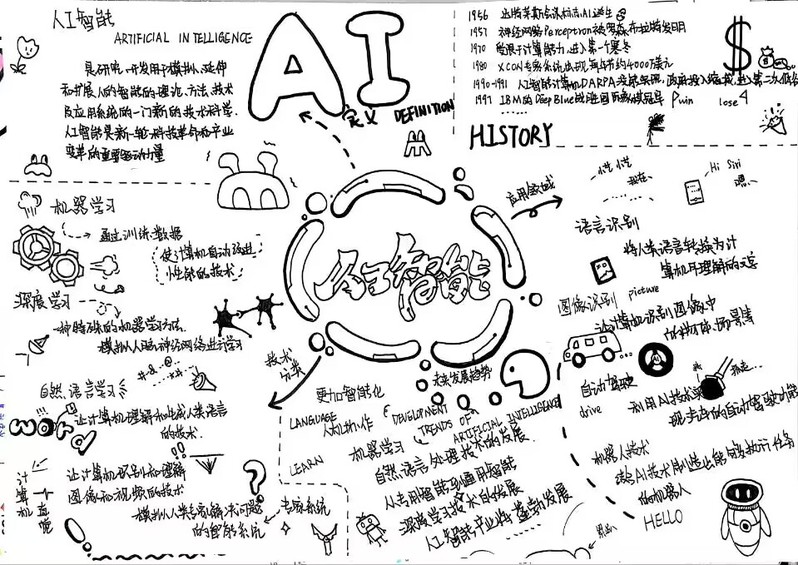 人工智能
ARTIFICIAL INTELLIGENCE
是研究、开发用于模拟、延伸
和扩展人的智能的理论、方法、技术
及应用系统的一门新的技术科学.
人工智能是新一轮科技革命和产业
变革的重要驱动力量
AI
定义 DEFINITION
1956 达特茅斯会议标志AI诞生
1957 神经网络Perceptron被罗森布拉特发明
1970 受限于计算能力,进入第一个寒冬
1980 XCON专家系统出现,每年节约4000万美元
1990-1991 人工智能计算机DARPA没能实现,政府投入缩减,进入第二次低谷
1997 IBM的Deep Blue战胜国际象棋冠军
win lose
......
$
HISTORY
机器学习
通过训练数据
使计算机自动改进
性能的技术
深度学习
一种特殊的机器学习方法.
模拟人脑神经网络进行学习
自然语言学习
让计算机理解和生成人类语言
的技术.
word
计算机直觉
让计算机识别和理解
图像和视频的技术
模拟人类专家解决问题
的智能系统
专家系统
技术
分类
人工智能
应用领域
Hi Siri
嘿...
语言识别
将人类语言转换为计
算机可理解的
图像识别 picture
让计算机识别图像中
的物体、场景等
自动驾驶
drive
利用AI技术实
现汽车的自动驾驶功能
机器人技术
结合AI技术制造出能够执行任务
的机器人
HELLO
未来发展趋势
更加智能化
LANGUAGE
人机协作
DEVELOPMENT
TRENDS OF
ARTIFICIAL INTELLIGENCE
LEARN
机器学习
自然语言处理技术的发展.
从专用智能到通用智能
深度学习技术的发展
人工智能产业将蓬勃发展